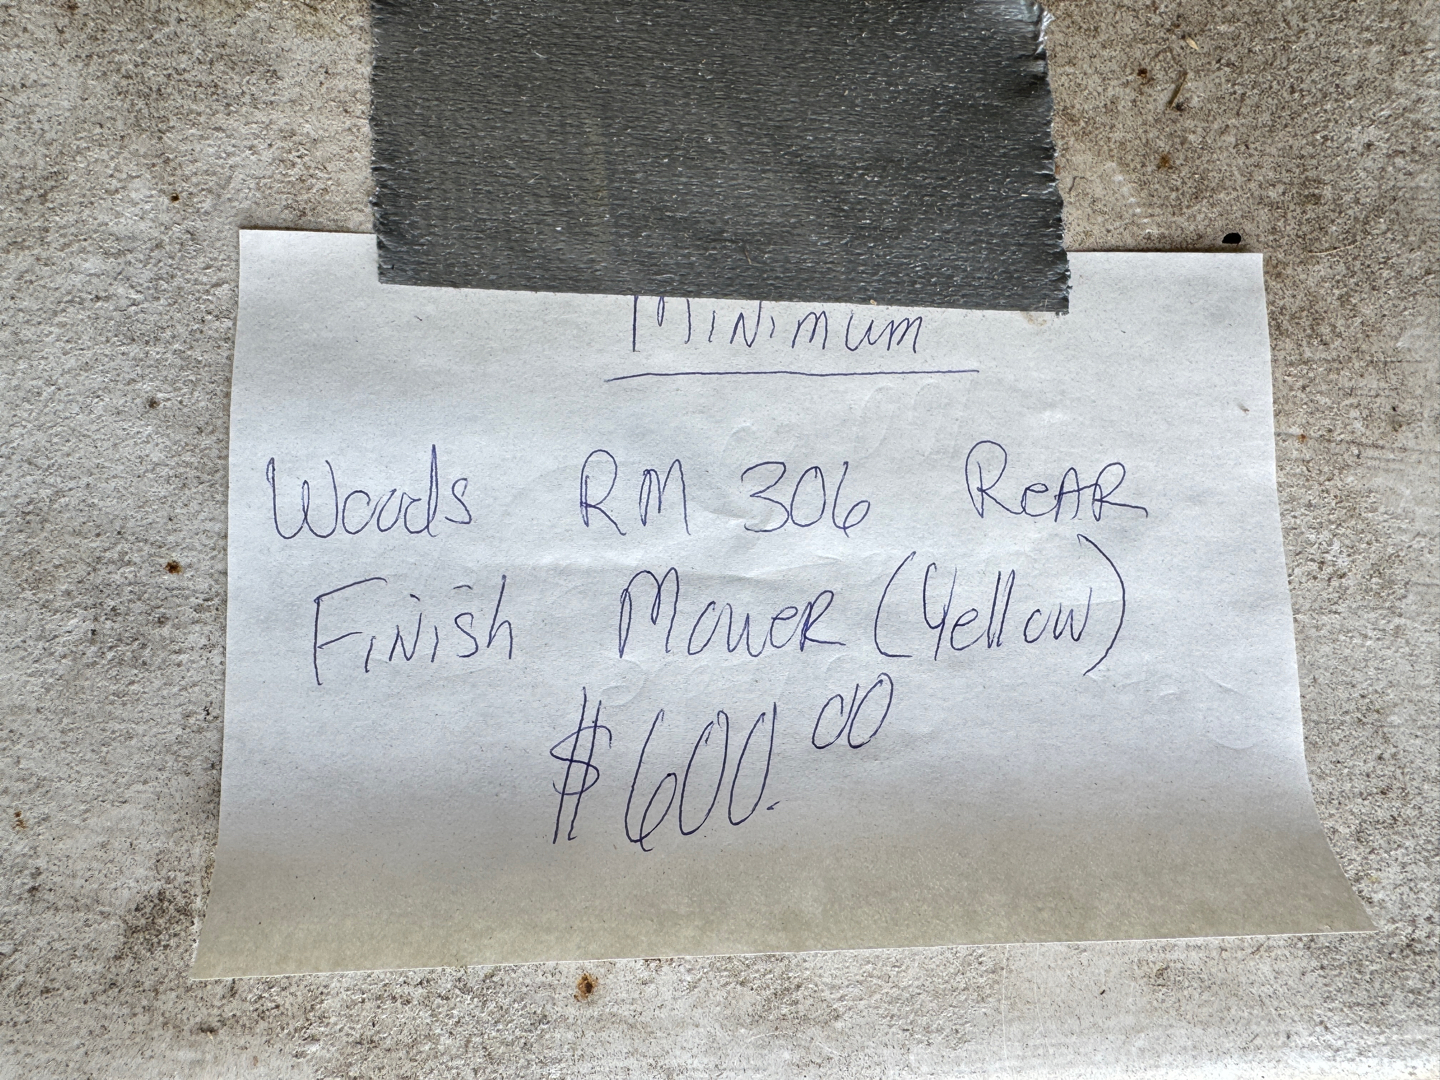 Minimum
Woods RM 306 ReAR
Finish Mower (Yellow)
$600.00